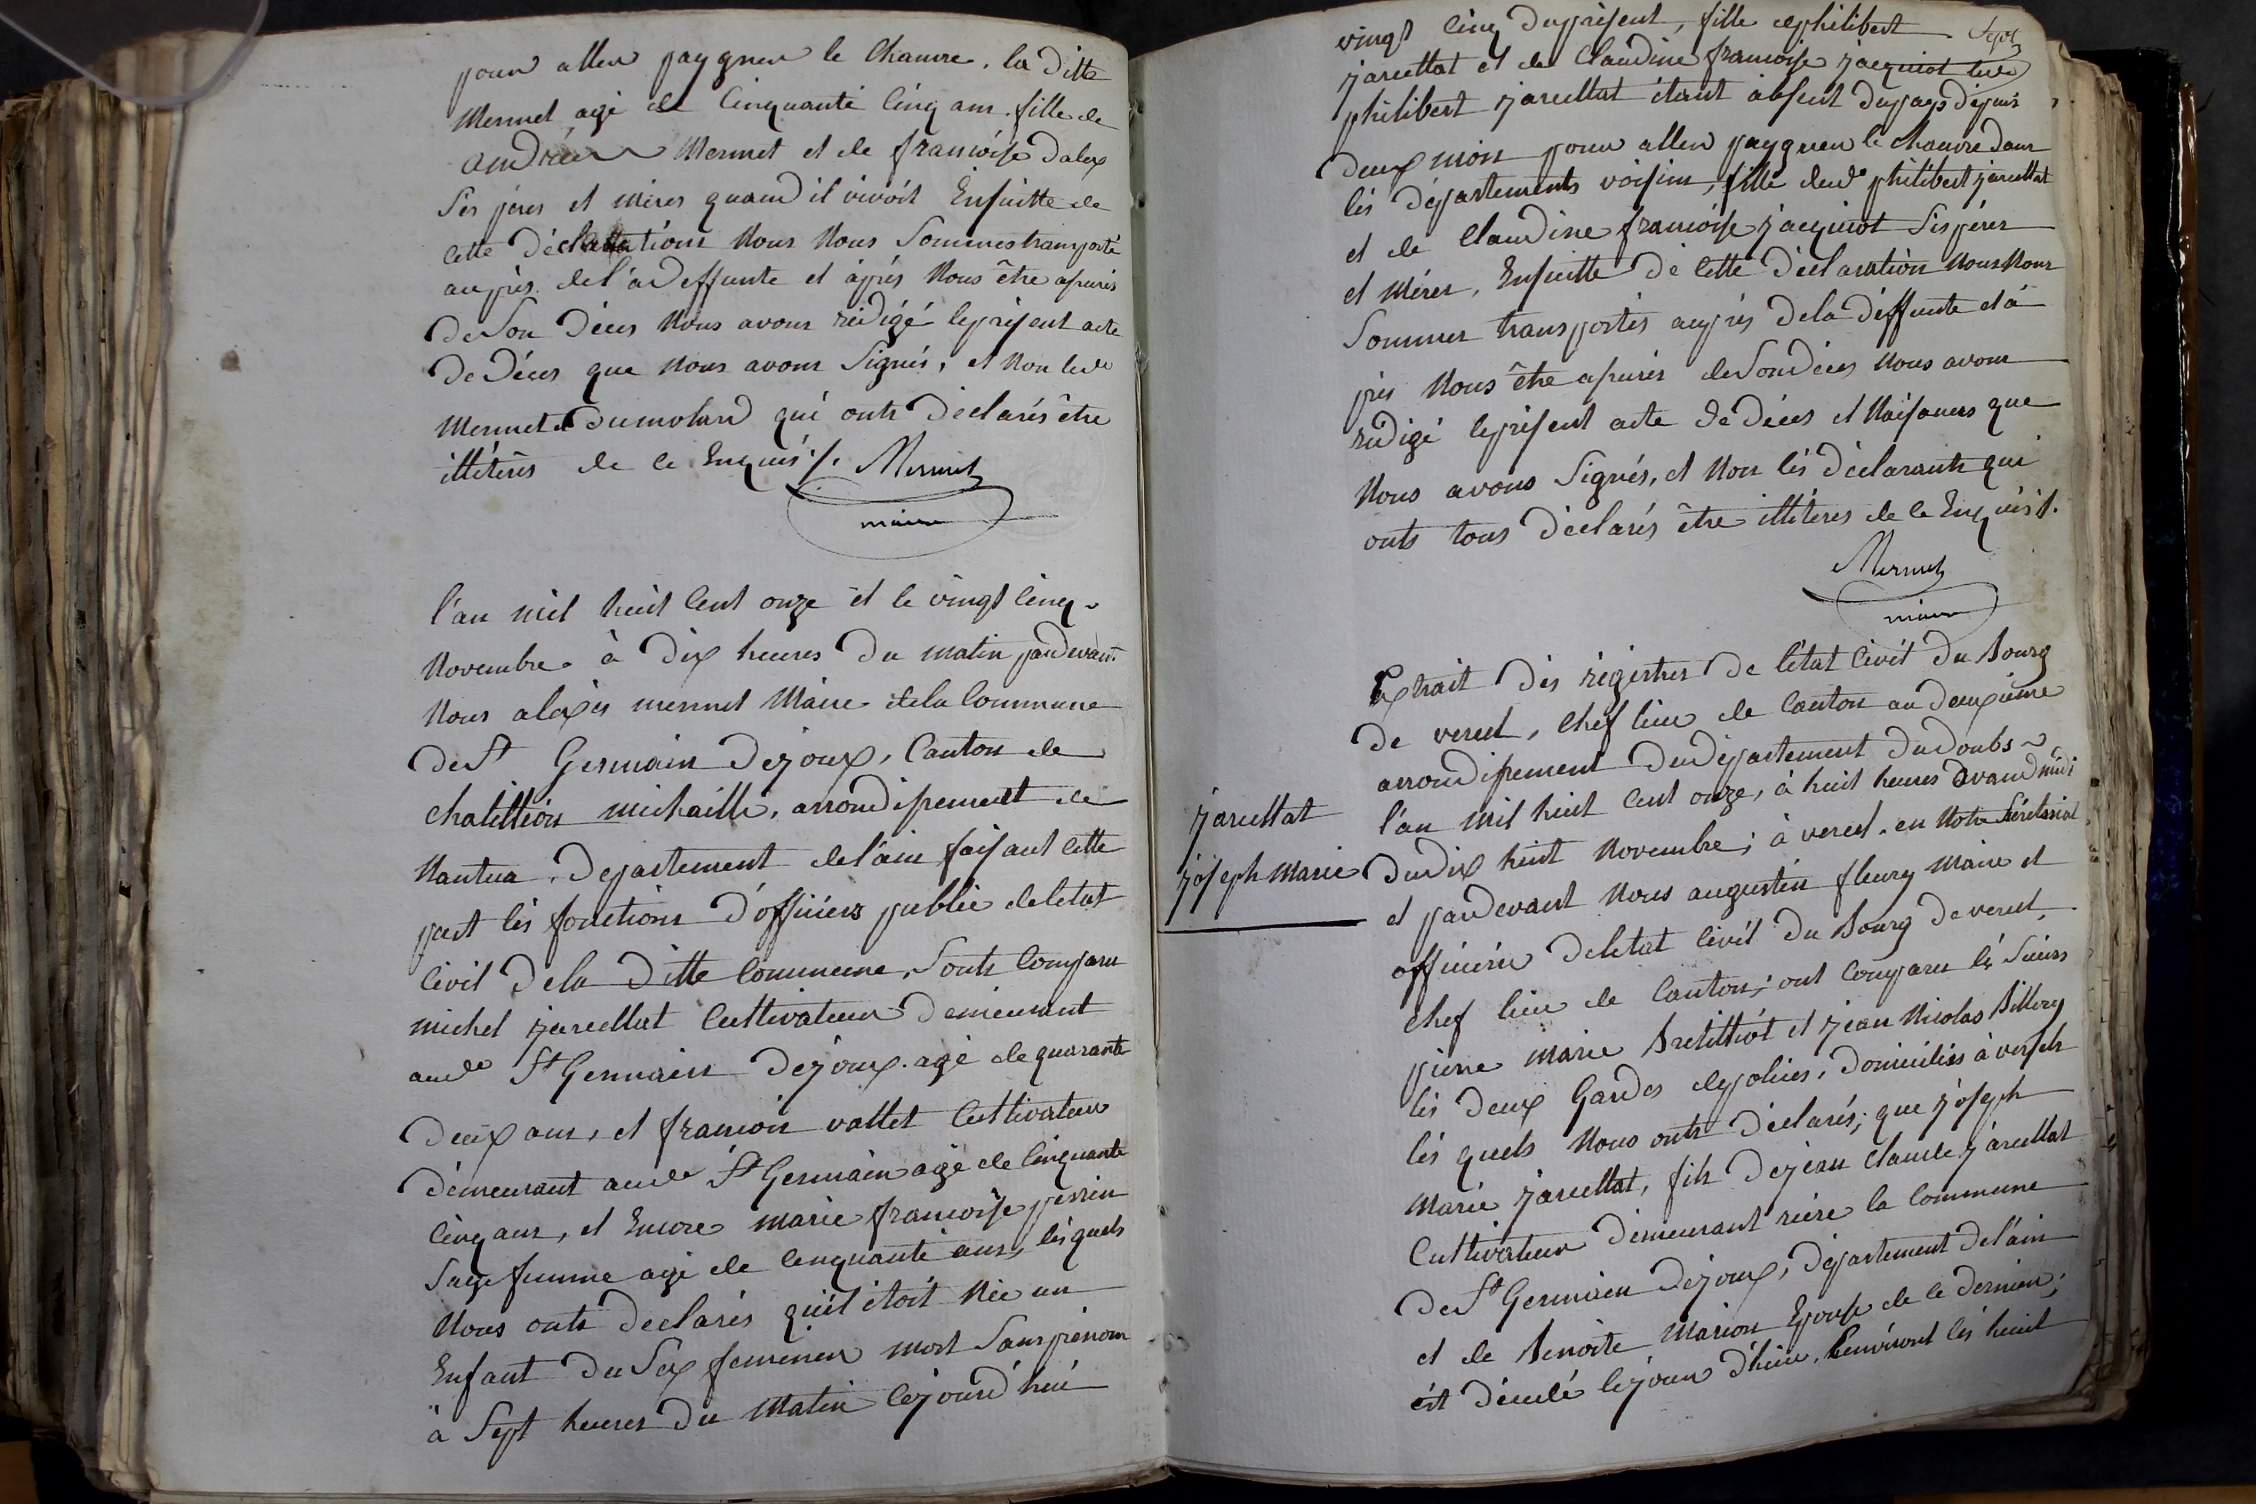 pour aller paygner le Chanvre. la ditte
Mermet agé de Cinquante Cinq ans fille de
andréa Mermet et de francoise dalex
Ses peres et meres quand il vivoit Ensuitte de
cette déclarations Nous Nous Sommes transporté
auprès de la deffunte et àprés Nous être assurés
de Son Déces Nous avons rédigé le présent acte
de Déces que Nous avons Signés, et Non led.
Mermet et Dumolard qui onts Declarés être
illiterés de ce Enquis ./. Mermet
maire
l'an mil huit Cent onze et le vingt Cinq
Novembre à Dix heures Du matin pardevant
Nous alexis mermet Maire de la Commune
de St Germain Dejoux, Canton de
Chatillion michaille, arrondissement de
Nantua, Departement de l'ain faisant cette
part les fonctions d'officiers public de letat
Civil De la Ditte Commune, Sonts Comparu
michel jarcellat Cultivateur Demeurant
aud. St Germain Dejoux. agé de quarante
Deux ans, et francois vallet Cultivateur
demeurant aud. St Germain agé de Cinquante
Cinq ans, et Encore marie francoise perrin
Sage femme agé de Cinquante ans, lesquels
Nous onts Declarés qu'il étoit Née un
Enfant Du Sex femenin mort Sans prenom
à Sept heures Du Matin Cejourd'hui
vingt Cinq du présent, fille de philibert
jarcellat et de Claudine francoise jacquiot led.
philibert jarcellat étant absent du pays depuis
Deux mois pour aller paygner le Chanvre dans
les départements voisins, fille dud. philibert jarcellat
et de Claudine francoise jacquiot Ses péres
et Méres, Ensuitte de Cette Déclaration Nous Nous
Sommes transportés auprés De la deffunte et à
prés Nous être assurés de Son déces Nous avons
rédigé le présent acte de Déces et Naisances que
Nous avons Signés, et Non lés déclarants qui
onts tous déclarés être illitéres de ce Enquis ./.
Mermet
maire
Extrait des régistres de l'état Civil du Bourg
De vercel, Chef lieu de Canton au deuxieme
arrondissement du département du doubs
jarcellat
joseph Marie
l'an mil huit Cent onze, à huit heures avand midi
du dix huit Novembre; à vercel. en Notre Sécrétariat
et pardevant Nous augustin fleury Maire et
officiér de létat Civil du Bourg de vercel,
Chef lieu de Canton; ont Comparu lés Sieurs
pierre marie Bretilliot et jean Nicolas Billery
lés deux Gardes de polices, domiciliés à vercels
lés quels Nous onts déclarés; que joseph
Marie jarcellat, fils de jean Claude jarcellat
Cultivateur demeurant riére la Commune
de St Germain Dejoux, département de l'ain
et de Benoite Marion Epouse de ce dernier;
est décédé le jour d'hier, Environt lés huit